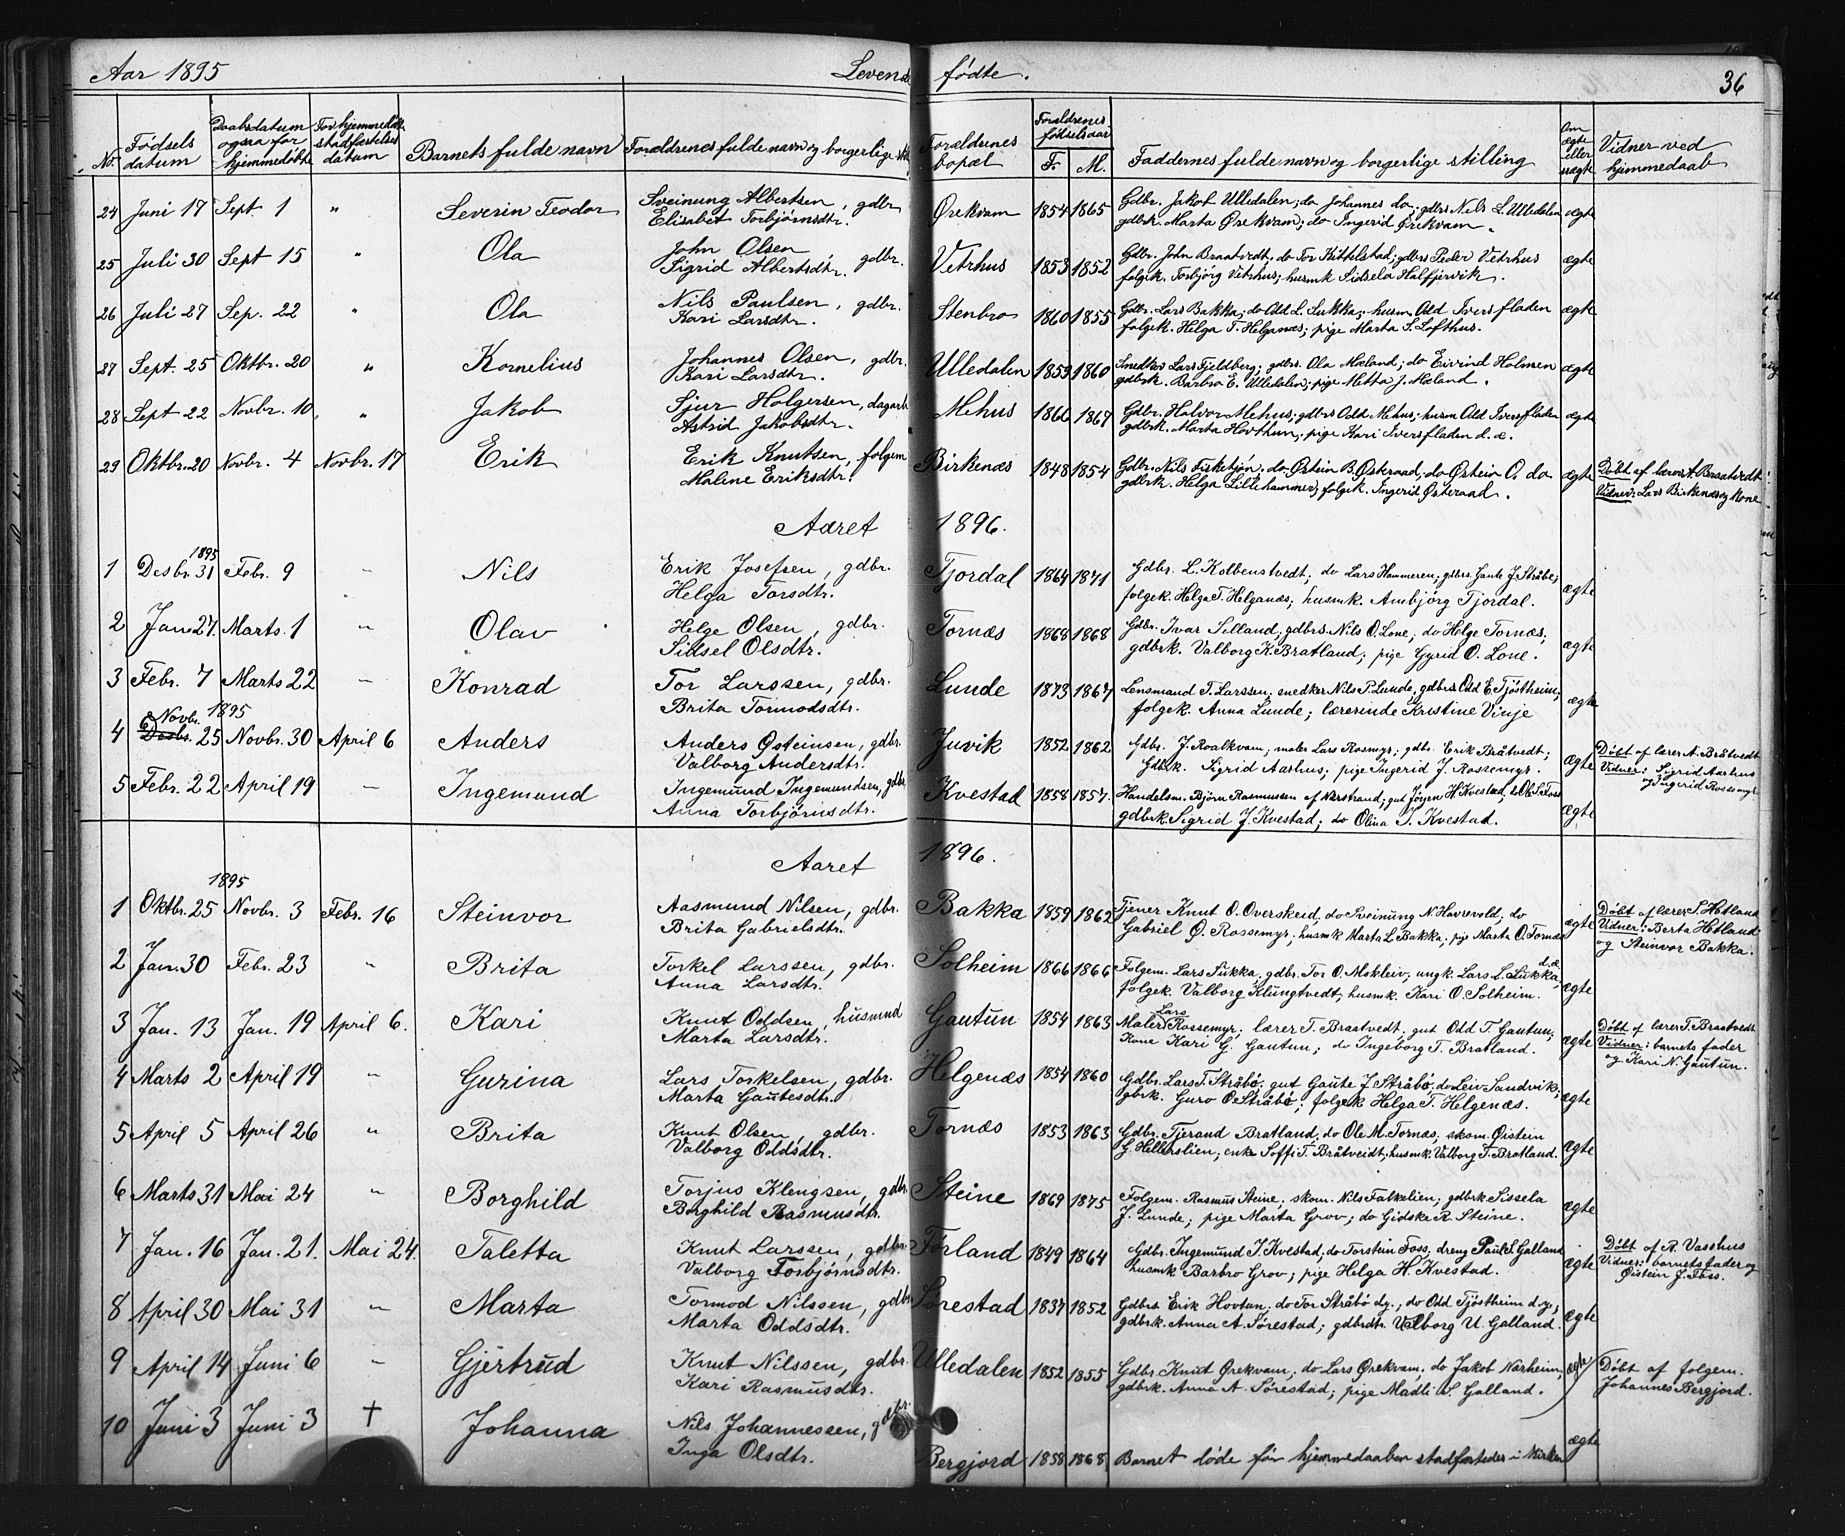 Aar 1895 Levende fødte. 36
No. Fødsels datum Daabsdatum ogsaa for hjemmedøbte For hjemmedøbte stadfæstelses datum Barnets fulde navn Forældrenes fulde navn og borgerlige Forældrenes bopæl Forældrenes fødselsaar F. M. Faddernes fulde navn og borgerlige stilling Om ægte eller uægte Vidner ved hjemmedaab
24 Juni 17 Sept 1 " Severin Teodor Sveinung Albertsen, gdbr Ørekvam 1854 1865 Gdbr. Jakob Ulledalen; do Johannes do; gdbrs Nils L. Ulledalen ægte
Elisabet Torbjørnsdtr. gdbrk. Marta Ørekvam; do Ingerid Ørekvam.
25 Juli 30 Sept 15 " Ola John Olsen, gdbr. Vetrhus 1853 1852 Gdbr. John Braatvedt, do Tor Kittilstad; gdbrs Peder Vetrhus ægte
Sigrid Albertsdtr. folgk. Torbjørg Vetrhus; husmk Sidsela Halfjervik.
26 Juli 27 Sep. 22 " Ola Nils Paulsen, gdbr. Stenbro 1860 1855 Gdbr. Lars Bakka; do Odd L. Sukka; husm Odd Iversfladen ægte
Kari Larsdtr. folgk. Helga T. Helganæs; pige Marta S. Lofthus.
27 Sept. 25 Oktbr. 20 " Kornelius Johannes Olsen, gdbr. Ulledalen 1853 1860 Snedker Lars Fjeldberg; gdbrs. Ola Mæland; do Eivind Holmen ægte
Kari Larsdtr. gdbrk. Barbro E. Ulledalen; pige Metta J. Mæland.
28 Sept 22 Novbr. 10 " Jakob Sjur Holgersen, dagarb Mehus 1866 1867 Gdbr. Halvor Mehus; gdbrs Odd Mehus; husm Odd Iversfladen ægte
Astrid Jakobsdtr. gdbrk. Marta Hovthun; pige Kari Iversfladen d.æ.
29 Oktbr. 20 Novbr. 4 Novbr. 17 Erik Erik Knutsen, folgem Birkenæs 1848 1854 Gdbr. Nils Fisketjøn, do Østein B. Østeraad, do Østein O. do ægte Døbt af lærer A. Braatvedt
Maline Eriksdtr. gdbrk. Helga Lillehammer; folgk. Ingerid Østeraad. Vidner: Lars Birkenæs og kone
Aaret 1896.
1 Desbr. 31 1895 Febr. 9 " Nils Erik Josefsen, gdbr. Tjordal 1864 1871 Gdbr. L. Kolbenstvedt; do Lars Hammeren; gdbrs Gaute J. Straabø; ægte
Helga Torsdtr. folgek. Helga T. Helganæs; husmk. Ambjørg Tjordal.
2 Jan. 27. Marts. 1 " Olav Helge Olsen, gdbr. Tornæs 1868 1868 Gdbr. Ivar Selland; gdbrs. Nils O. Lone; do Helge Tornæs; ægte
Sidsel Olsdtr. gdbrk. Valborg K. Bratland; pige Gyrid O. Lone.
3 Febr. 7 Marts 22 " Konrad Tor Larssen, gdbr. Lunde 1873 1867 Lensmand T. Larssen; snedker Nils P. Lunde, gdbrs Odd E. Tjøstheim; ægte
Brita Tormodsdtr. folgek. Anna Lunde; lærerinde Kristine Vinje
4 Novbr. 1895 Desbr. 25 Novbr. 30 April 6 Anders Anders Østeinsen, gdbr. Juvik 1852 1862 Gdbr. J. Roalkvam; maler Lars Rosmyr; gdbr. Erik Bråtvedt; ægte Døbt af lærer A. Bråtvedt
Valborg Andersdtr. Gdbrk. Sigrid Aarhus; pige Ingerid J. Rossemyr. Vidner: Sigrid Aarhus og Ingerid Rossemyr
5 Febr. 22 April 19 " Ingemund Ingemund Ingemundsen, gdbr. Kvestad 1858 1857. Handelsm. Bjørn Rasmussen af Nærstrand; gut Jørgen H. Kvestad, do Ole S. Foss ægte
Anna Torbjørnsdtr. gdbrk Sigrid J. Kvestad; do Olina I. Kvestad.
Aaret 1896.
1 Oktbr. 25 1895 Novbr. 3 Febr. 16 Steinvor Aasmund Nilsen, gdbr. Bakka 1859 1862 Tjener Knut O. Overskeid, do Sveinung N. Havrevold; do ægte Døbt af lærer S. Hetland
Brita Gabrielsdtr. Gabriel Ø. Rossemyr; husmk Marta L. Bakka; pige Marta O. Tornæs Vidner: Berta Hetland og Steinvor Bakka.
2 Jan. 30 Febr. 23 " Brita Torkel Larssen, gdbr. Solheim 1866 1866 Folgem. Lars Sukka, gdbr. Tor O. Mokleiv; ungk. Lars L. Sukka d.æ. ægte
Anna Larsdtr. folgek. Valborg Klungtvedt; husmk. Kari O. Solheim.
3 Jan. 13 Jan. 19 April 6. Kari Knut Oddsen, husmnd Gautun 1854 1863 Maler Lars Rossemyr; lærer T. Braatvedt; gut Odd T. Gautun; ægte Døbt af lærer T. Braatvedt
Marta Larsdtr. Kone Kari G. Gautun; do Ingeborg T. Bratland. Vidner: barnets fader og Kari N. Gautun.
4 Marts 2 April 19 " Gurina Lars Torkelsen, gdbr. Helgenæs 1854 1860 Gdbr. Lars T. Stråbø; gut Gaute J. Stråbø; do Leiv Sandvik; ægte
Marta Gautesdtr. gbrk. Guro O. Stråbø; folgek Helga T. Helgenæs.
5 April 5 April 26 " Brita Knut Olsen, gdbr. Tornæs 1853 1863 Gdbr. Tjerand Bratland, do Ole M. Tornæs; skom. Øistein ægte
Valborg Oddsdtr. G. Hellerslien; enke Soffi T. Bråtveidt; husmk. Valborg T. Bratland.
6 Marts 31 Mai 24 " Borghild Torjus Klengsen, gdbr. Steine 1869 1875 Folgem. Rasmus Steine; skom. Nils Falkelien; gdbrk Sissela ægte
Borghild Rasmusdtr. J. Lunde; pige Marta Grov; do Gidske R. Steine.
7 Jan. 16 Jan. 21. Mai 24. Taletta Knut Larssen, gdbr. Førland 1849 1864 Gdbr. Ingemund I. Kvestad; do Torstein Foss; dreng Paul S. Galland ægte Døbt af R. Vasshus
Valborg Torbjørnsdtr. husmk Barbro Grov; pige Helga H. Kvestad. Vidner: barnets fader og Øistein J. Foss.
8 April 30 Mai 31 " Marta Tormod Nilssen, gdbr Sørestad 1837 1852 Gdbrs. Erik Hovtun; do Tor Stråbø d.y.; do Odd Tjøstheim d.y.; ægte
Marta Oddsdtr. gdbrk. Anna A. Sørestad; gdbrdtr. Valborg U. Galland.
9 April 14 Juni 6 " Gjertrud Knut Nilssen, gdbr. Ulledalen 1852 1855 Gdbr. Knut Ørekvam, do Lars Ørekvam; do Jakob Nærheim; ægte Døbt af folgem.
Kari Rasmusdtr. gdbrk. Anna A. Sørestad; pige Madli S. Galland. Johannes Bergjord.
10 Juni 3 Juni 3 † Johanna Nils Johannessen, gdbr. Bergjord 1858 1868 Barnet døde før hjemmedaaben stadfæstedes i kirken ægte
Inga Olsdtr.